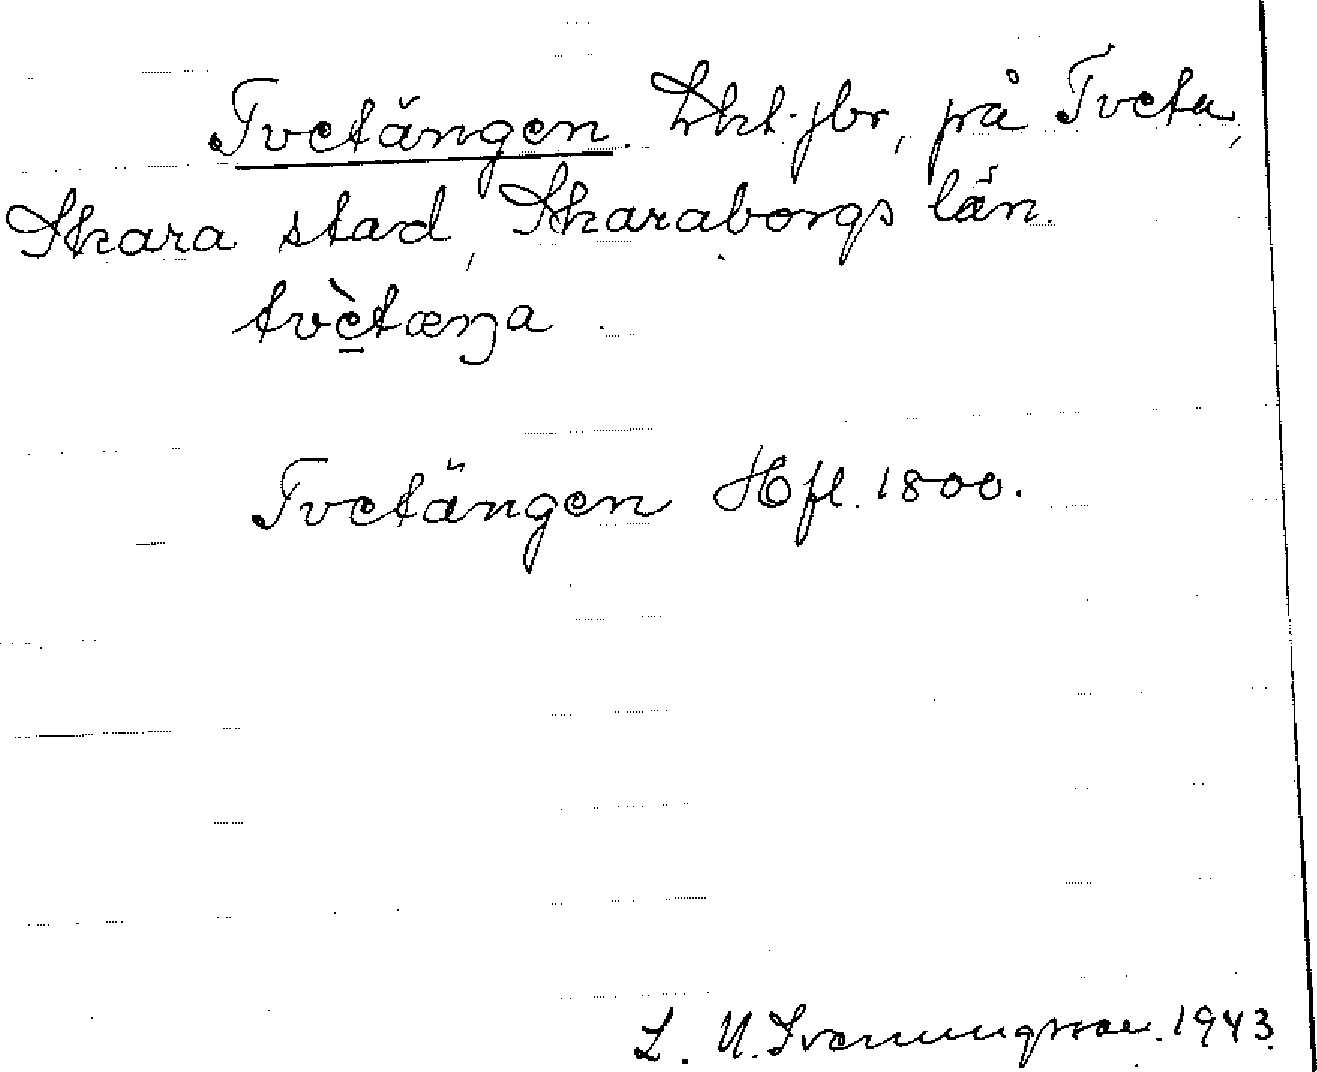 Tvetängen. Lht. jbr, på Tveta,
Skara stad, Skaraborgs län.
tvètæŋa
Tvetängen Hfl. 1800.
L. U. Svenungsson. 1943.